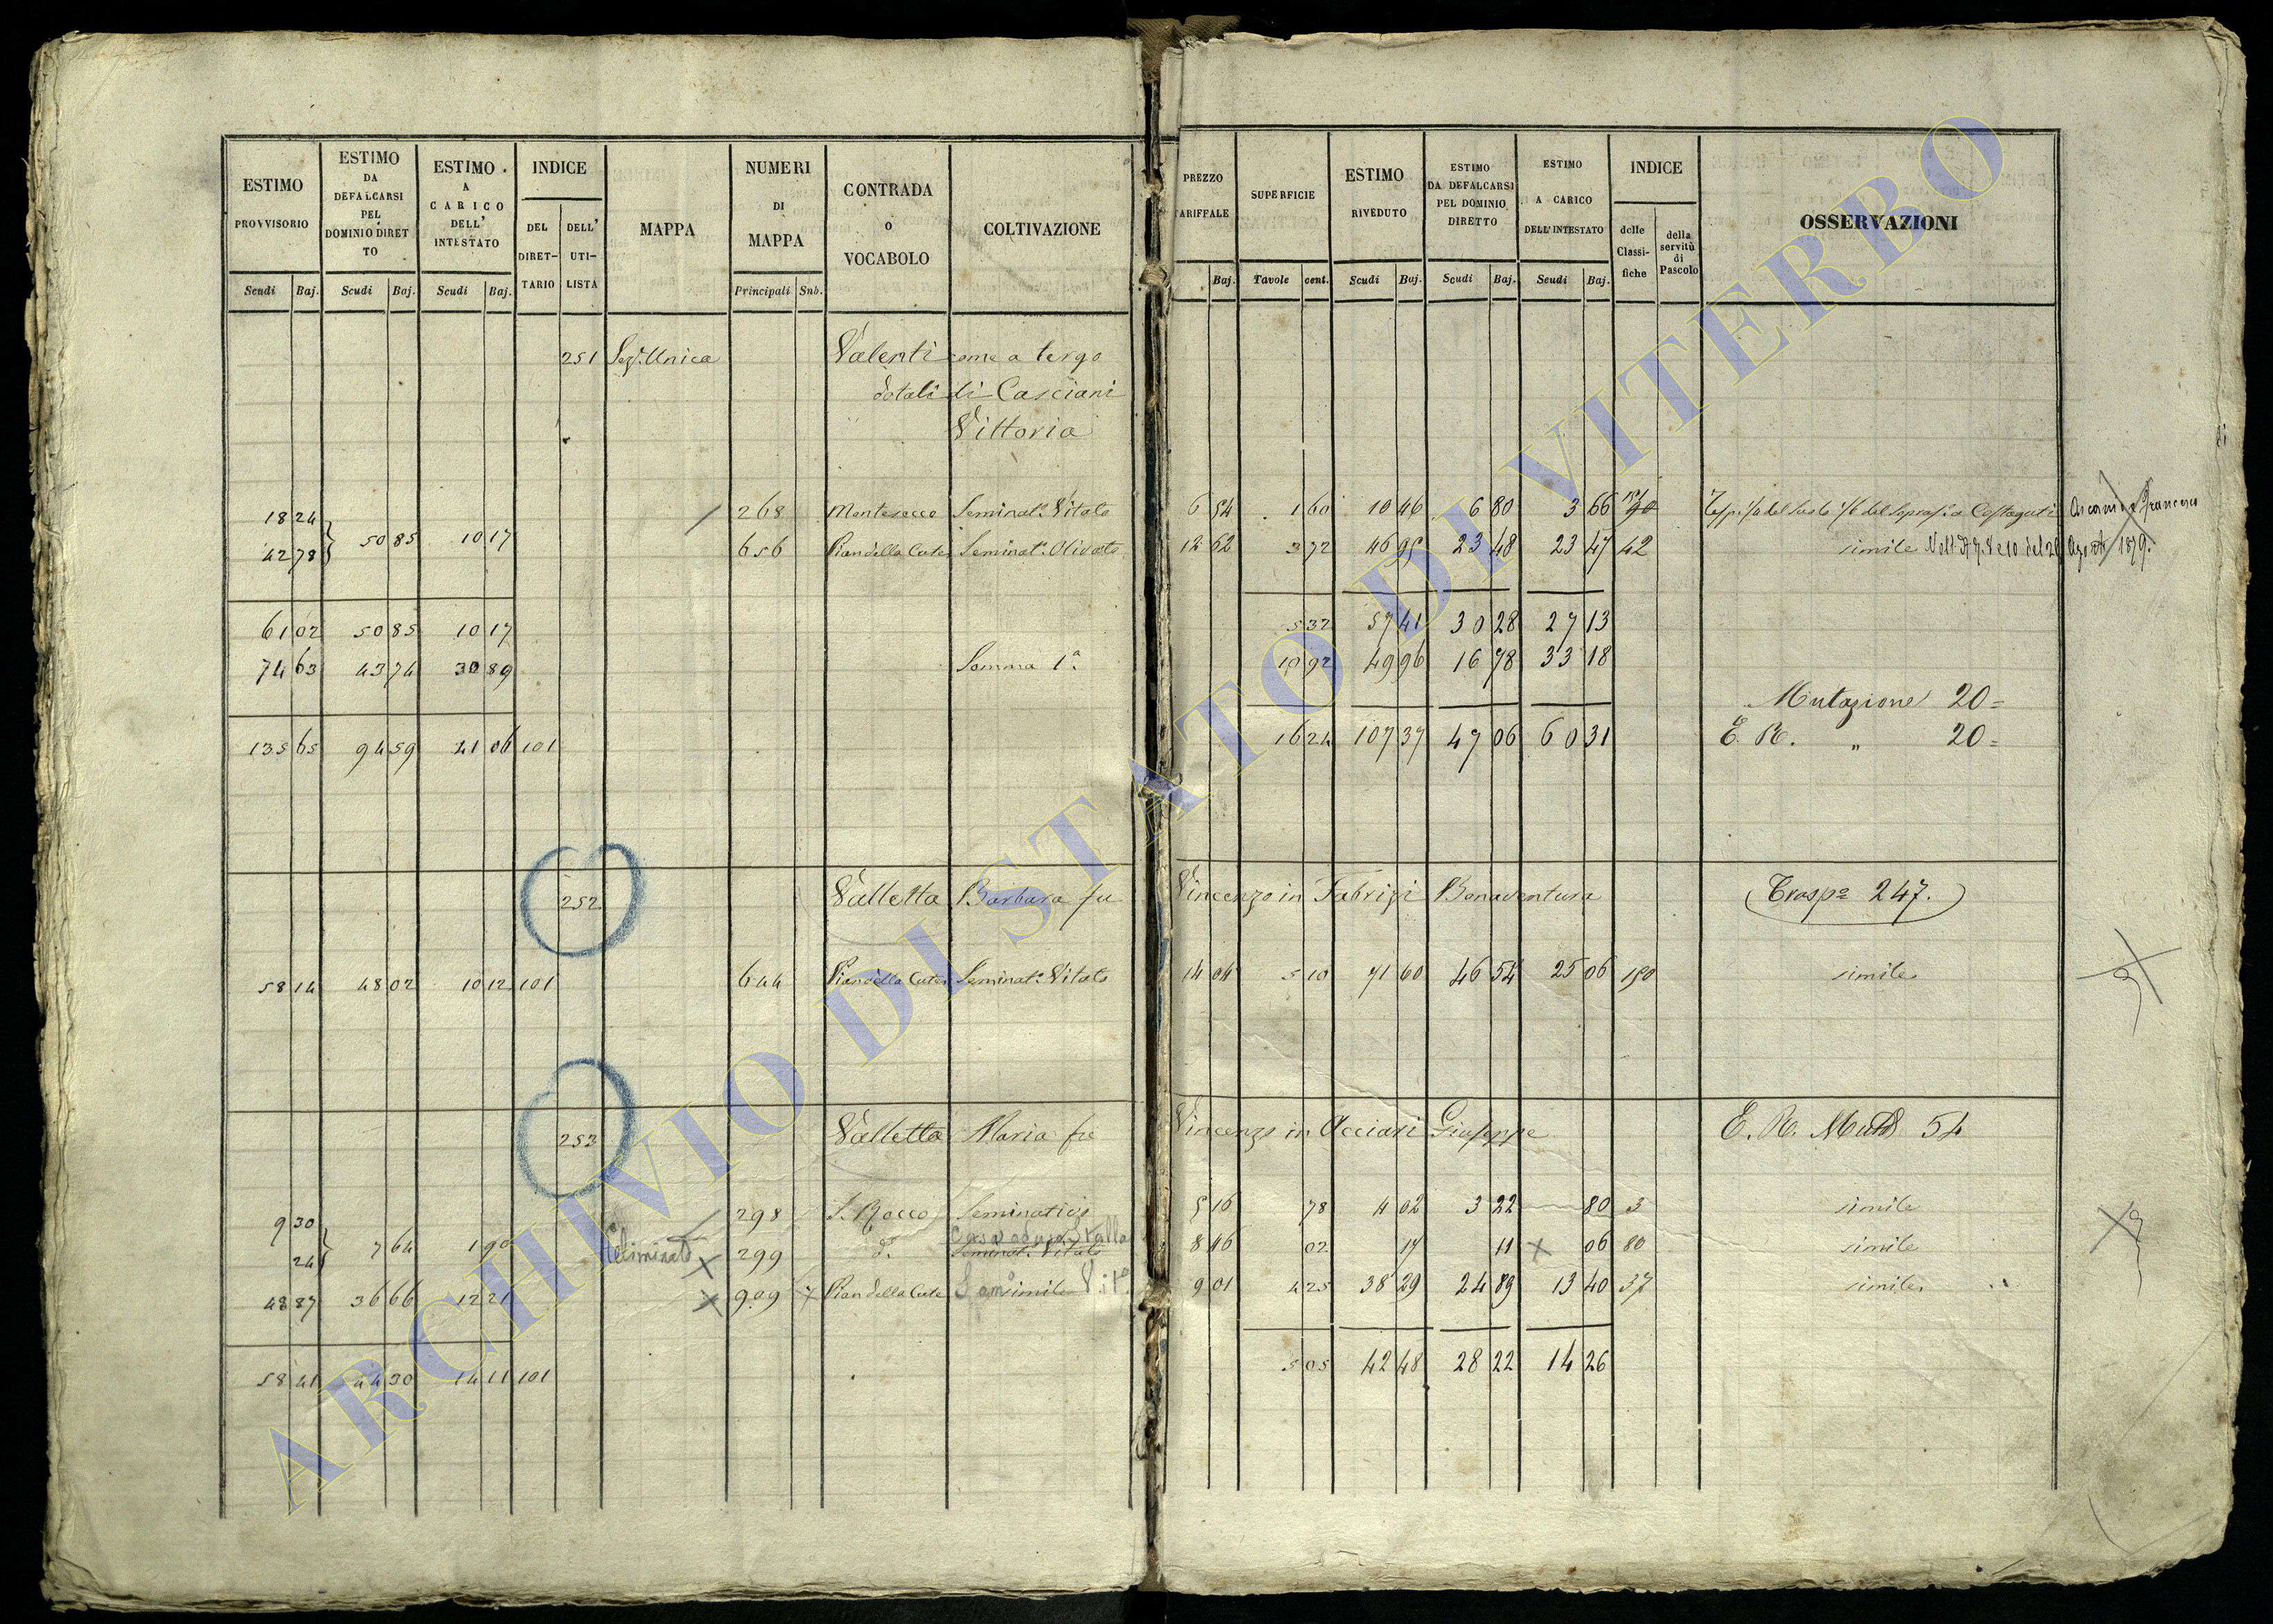 ESTIMO PROVVISORIO Scudi Baj.
ESTIMO DA DEFALCARSI PEL DOMINIO DIRETTO Scudi Baj.
ESTIMO A CARICO DELL' INTESTATO Scudi Baj.
INDICE DEL DIRET-TARIO DELL' UTI-LISTA
MAPPA
NUMERI DI MAPPA Principali Snb.
CONTRADA o VOCABOLO
COLTIVAZIONE
PREZZO TARIFFALE Baj.
SUPERFICIE Tavole cent.
ESTIMO RIVEDUTO Scudi Baj.
ESTIMO DA DEFALCARSI PEL DOMINIO DIRETTO Scudi Baj.
ESTIMO A CARICO DELL'INTESTATO Scudi Baj.
INDICE delle Classi-fiche della servitù di Pascolo
OSSERVAZIONI
251 Sez. Unica Valenti come a tergo
dotali di Casciani
Vittoria
18 24 268 Montesecco Seminat.o Vitato 6 54 1 60 10 46 6 80 3 66
50 85 10 17
42 78 656 Pian della Cute Seminat.o Olivato 12 62 3 72 46 95 23 48 23 47 42 simile
61 02 50 85 10 17 5 32 57 41 30 28 27 13
74 63 43 74 30 89 Somma 1a. 10 92 49 96 16 78 33 18
Mutazione 20=
135 65 94 59 41 06 101 16 24 107 37 47 06 60 31 E. R. " 20=
252 Valletta Barbara fu Vincenzo in Fabrizi Bonaventura Trasp.o 247.
58 14 48 02 10 12 101 644 Pian della Cute Seminat.o Vitato 14 04 5 10 71 60 46 54 25 06 190 simile
253 Valletta Maria fu Vincenzo in Acciari Giuseppe E. R. 54
9 30 298 S. Rocco Seminativo 5 16 78 4 02 3 22 80 3 simile
7 64 1 90
Casa ad uso Stalla
24 Eliminato 299 d.o Seminat.o Vitato 8 46 02 17 11 06 80 simile
48 87 36 66 12 21 909 Pian della Cute simile 9 01 4 25 38 29 24 89 13 40 37 simile
58 41 44 30 14 11 101 5 05 42 48 28 22 14 26
ARCHIVIO DI STATO DI VITERBO